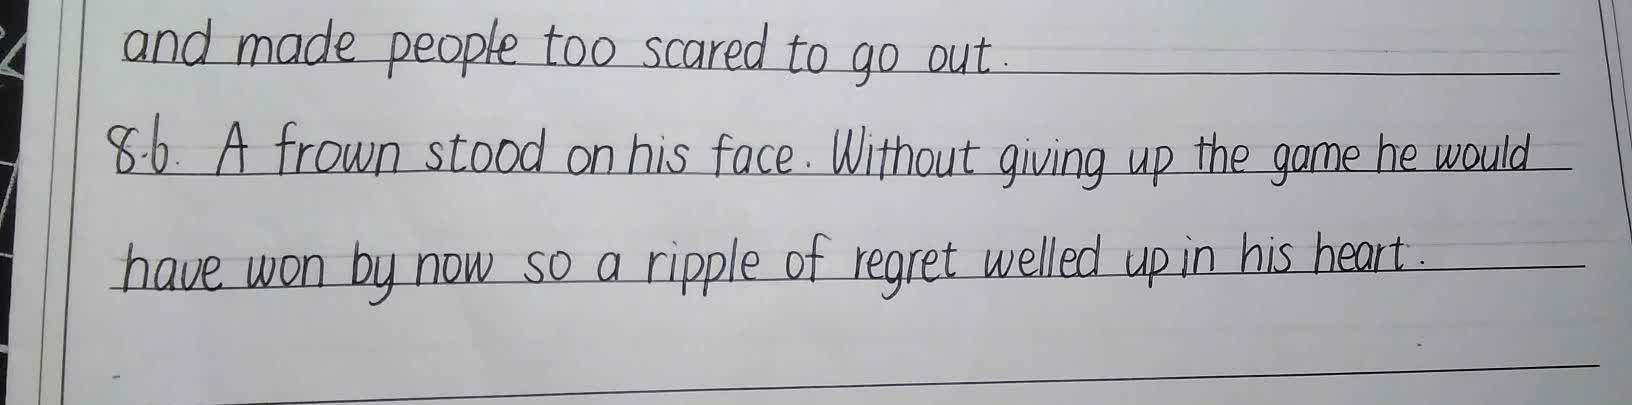 and made people too scared to go out.
8.6. A frown stood on his face. Without giving up the game he would
have won by now so a ripple of regret welled up in his heart.